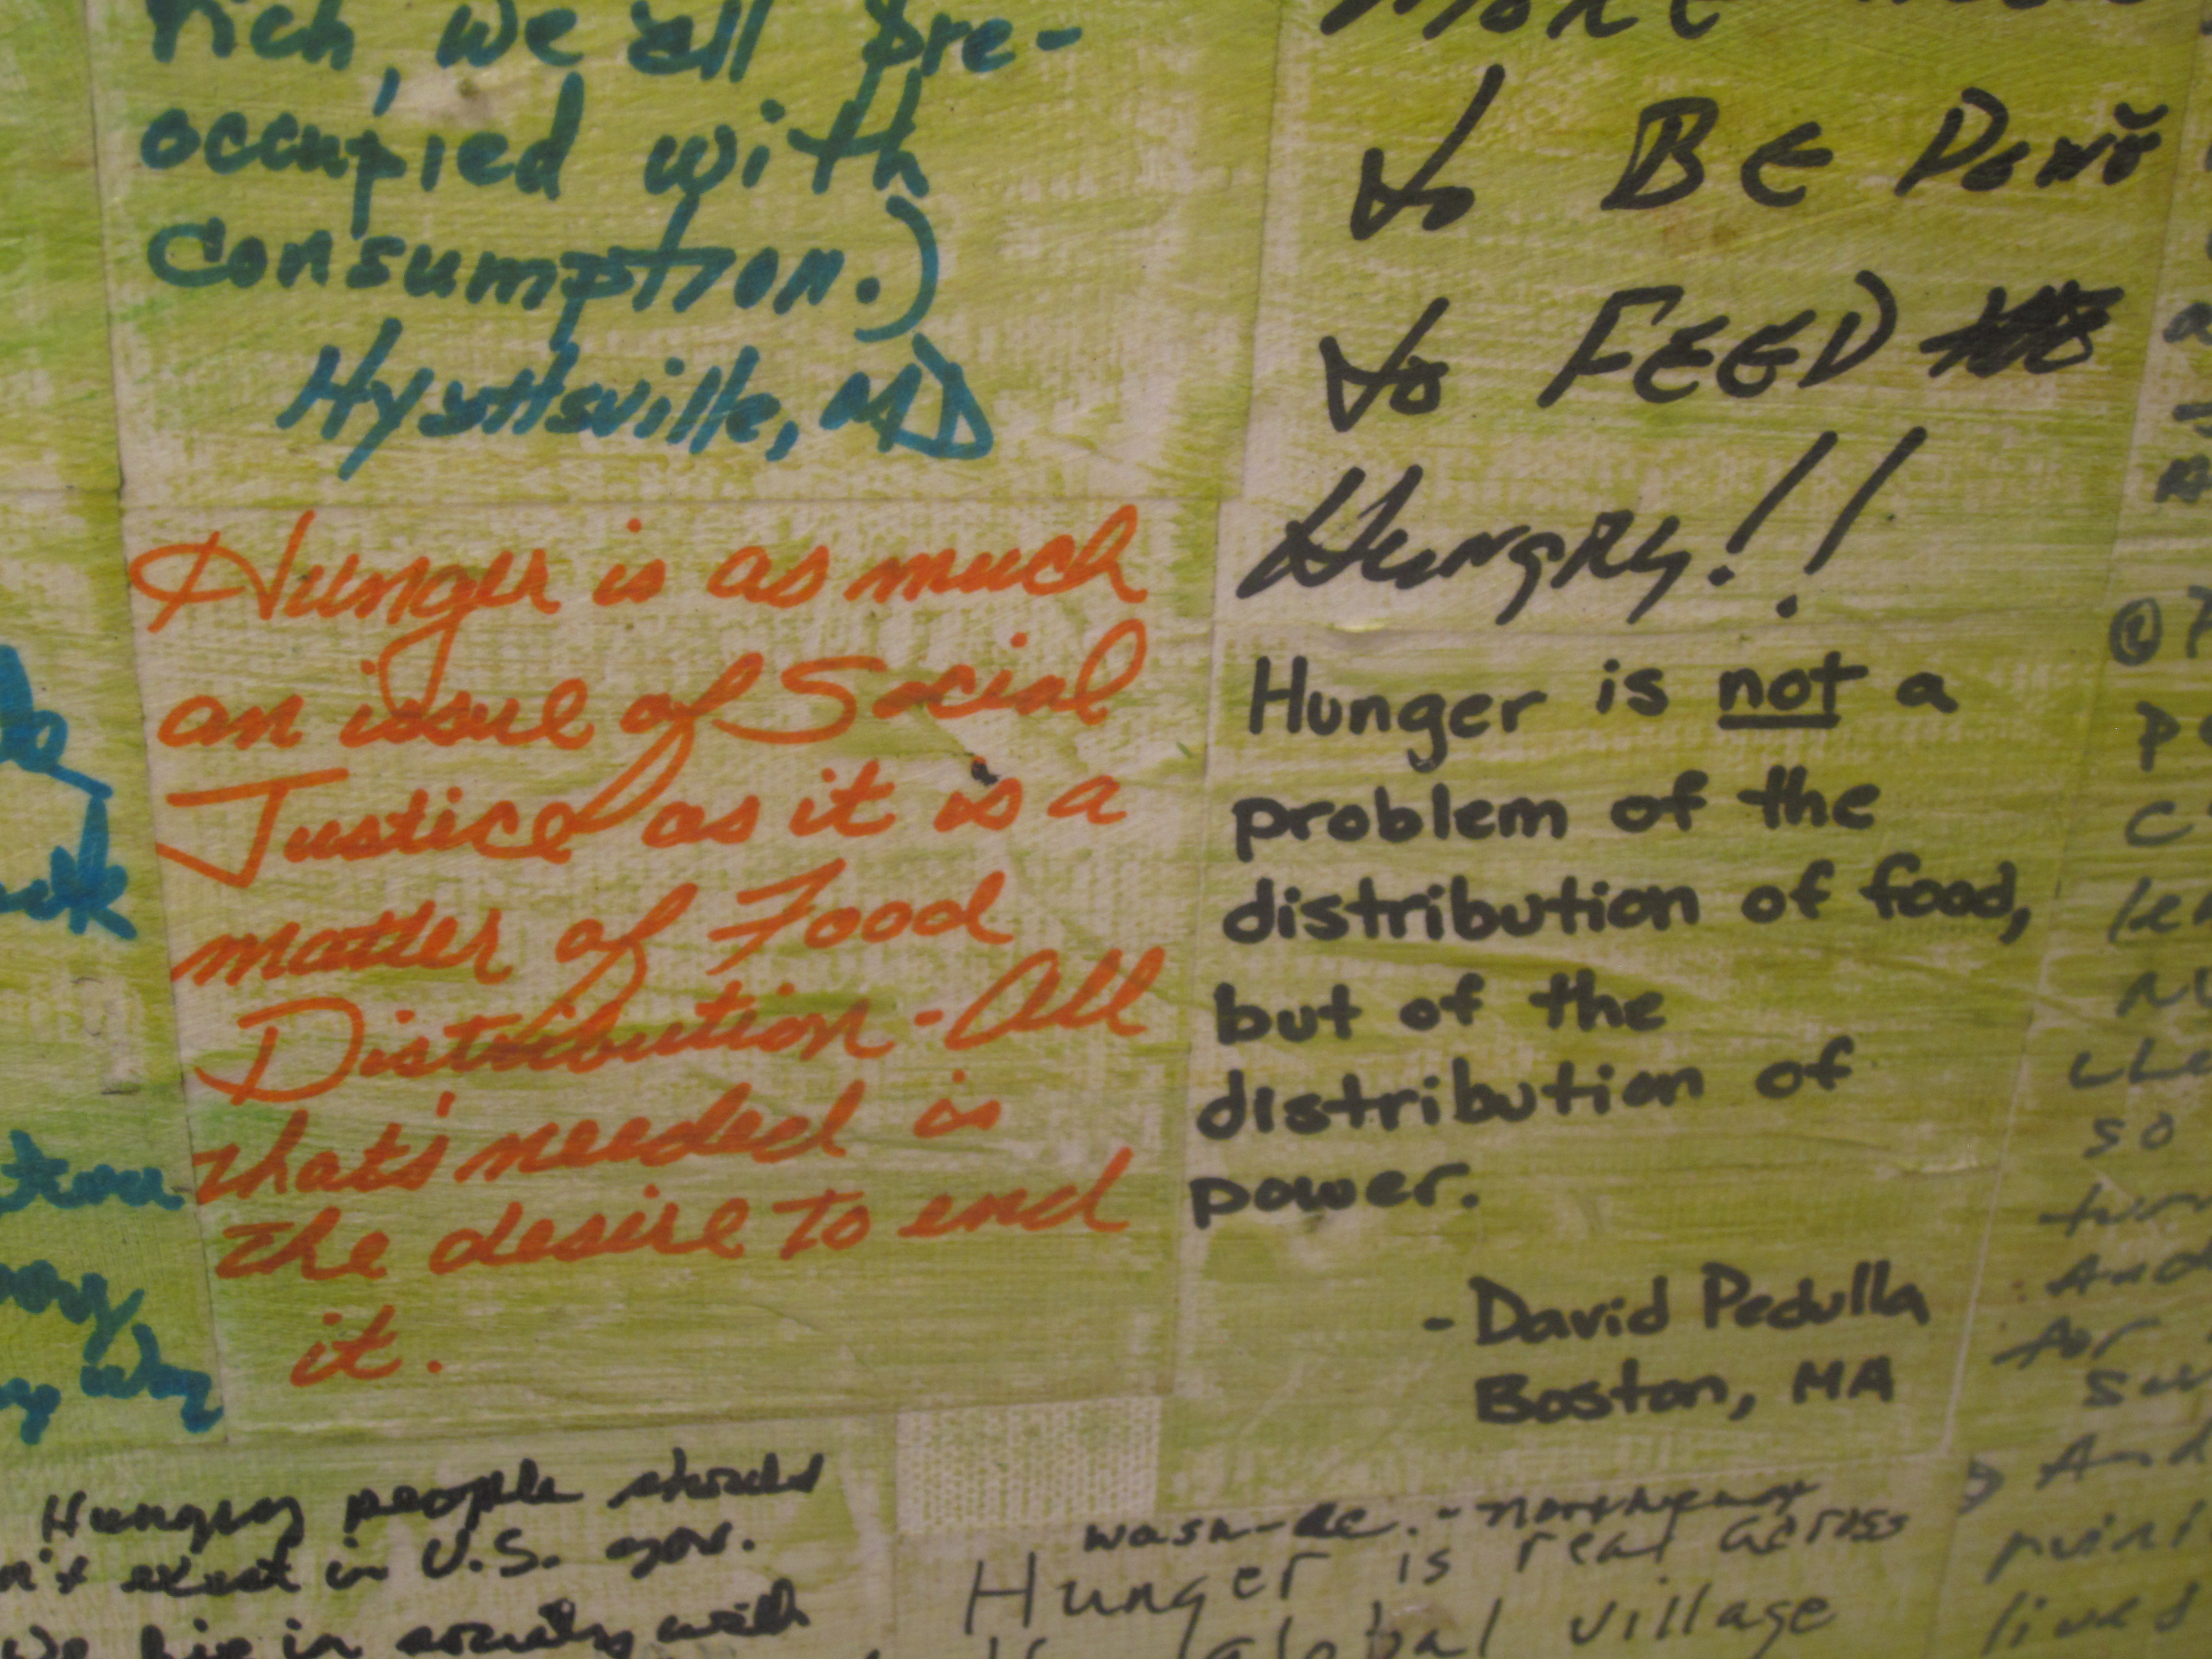 rich, we all pre-
occupied with
consumption.)
Hyattsville, MD
Hunger is as much
an issue of Social
Justice as it is a
matter of Food
Distribution - All
that's needed is
the desire to end
it.
to BE Done
to FEED
Hungry!!
Hunger is not a
problem of the
distribution of food,
but of the
distribution of
power.
- David Pedulla
Boston, MA
Hungry people should
n't exist in U.S. gov.
We live in society with
wash-dc. - northwest
Hunger is real across
global village
so
And
for
And
lives